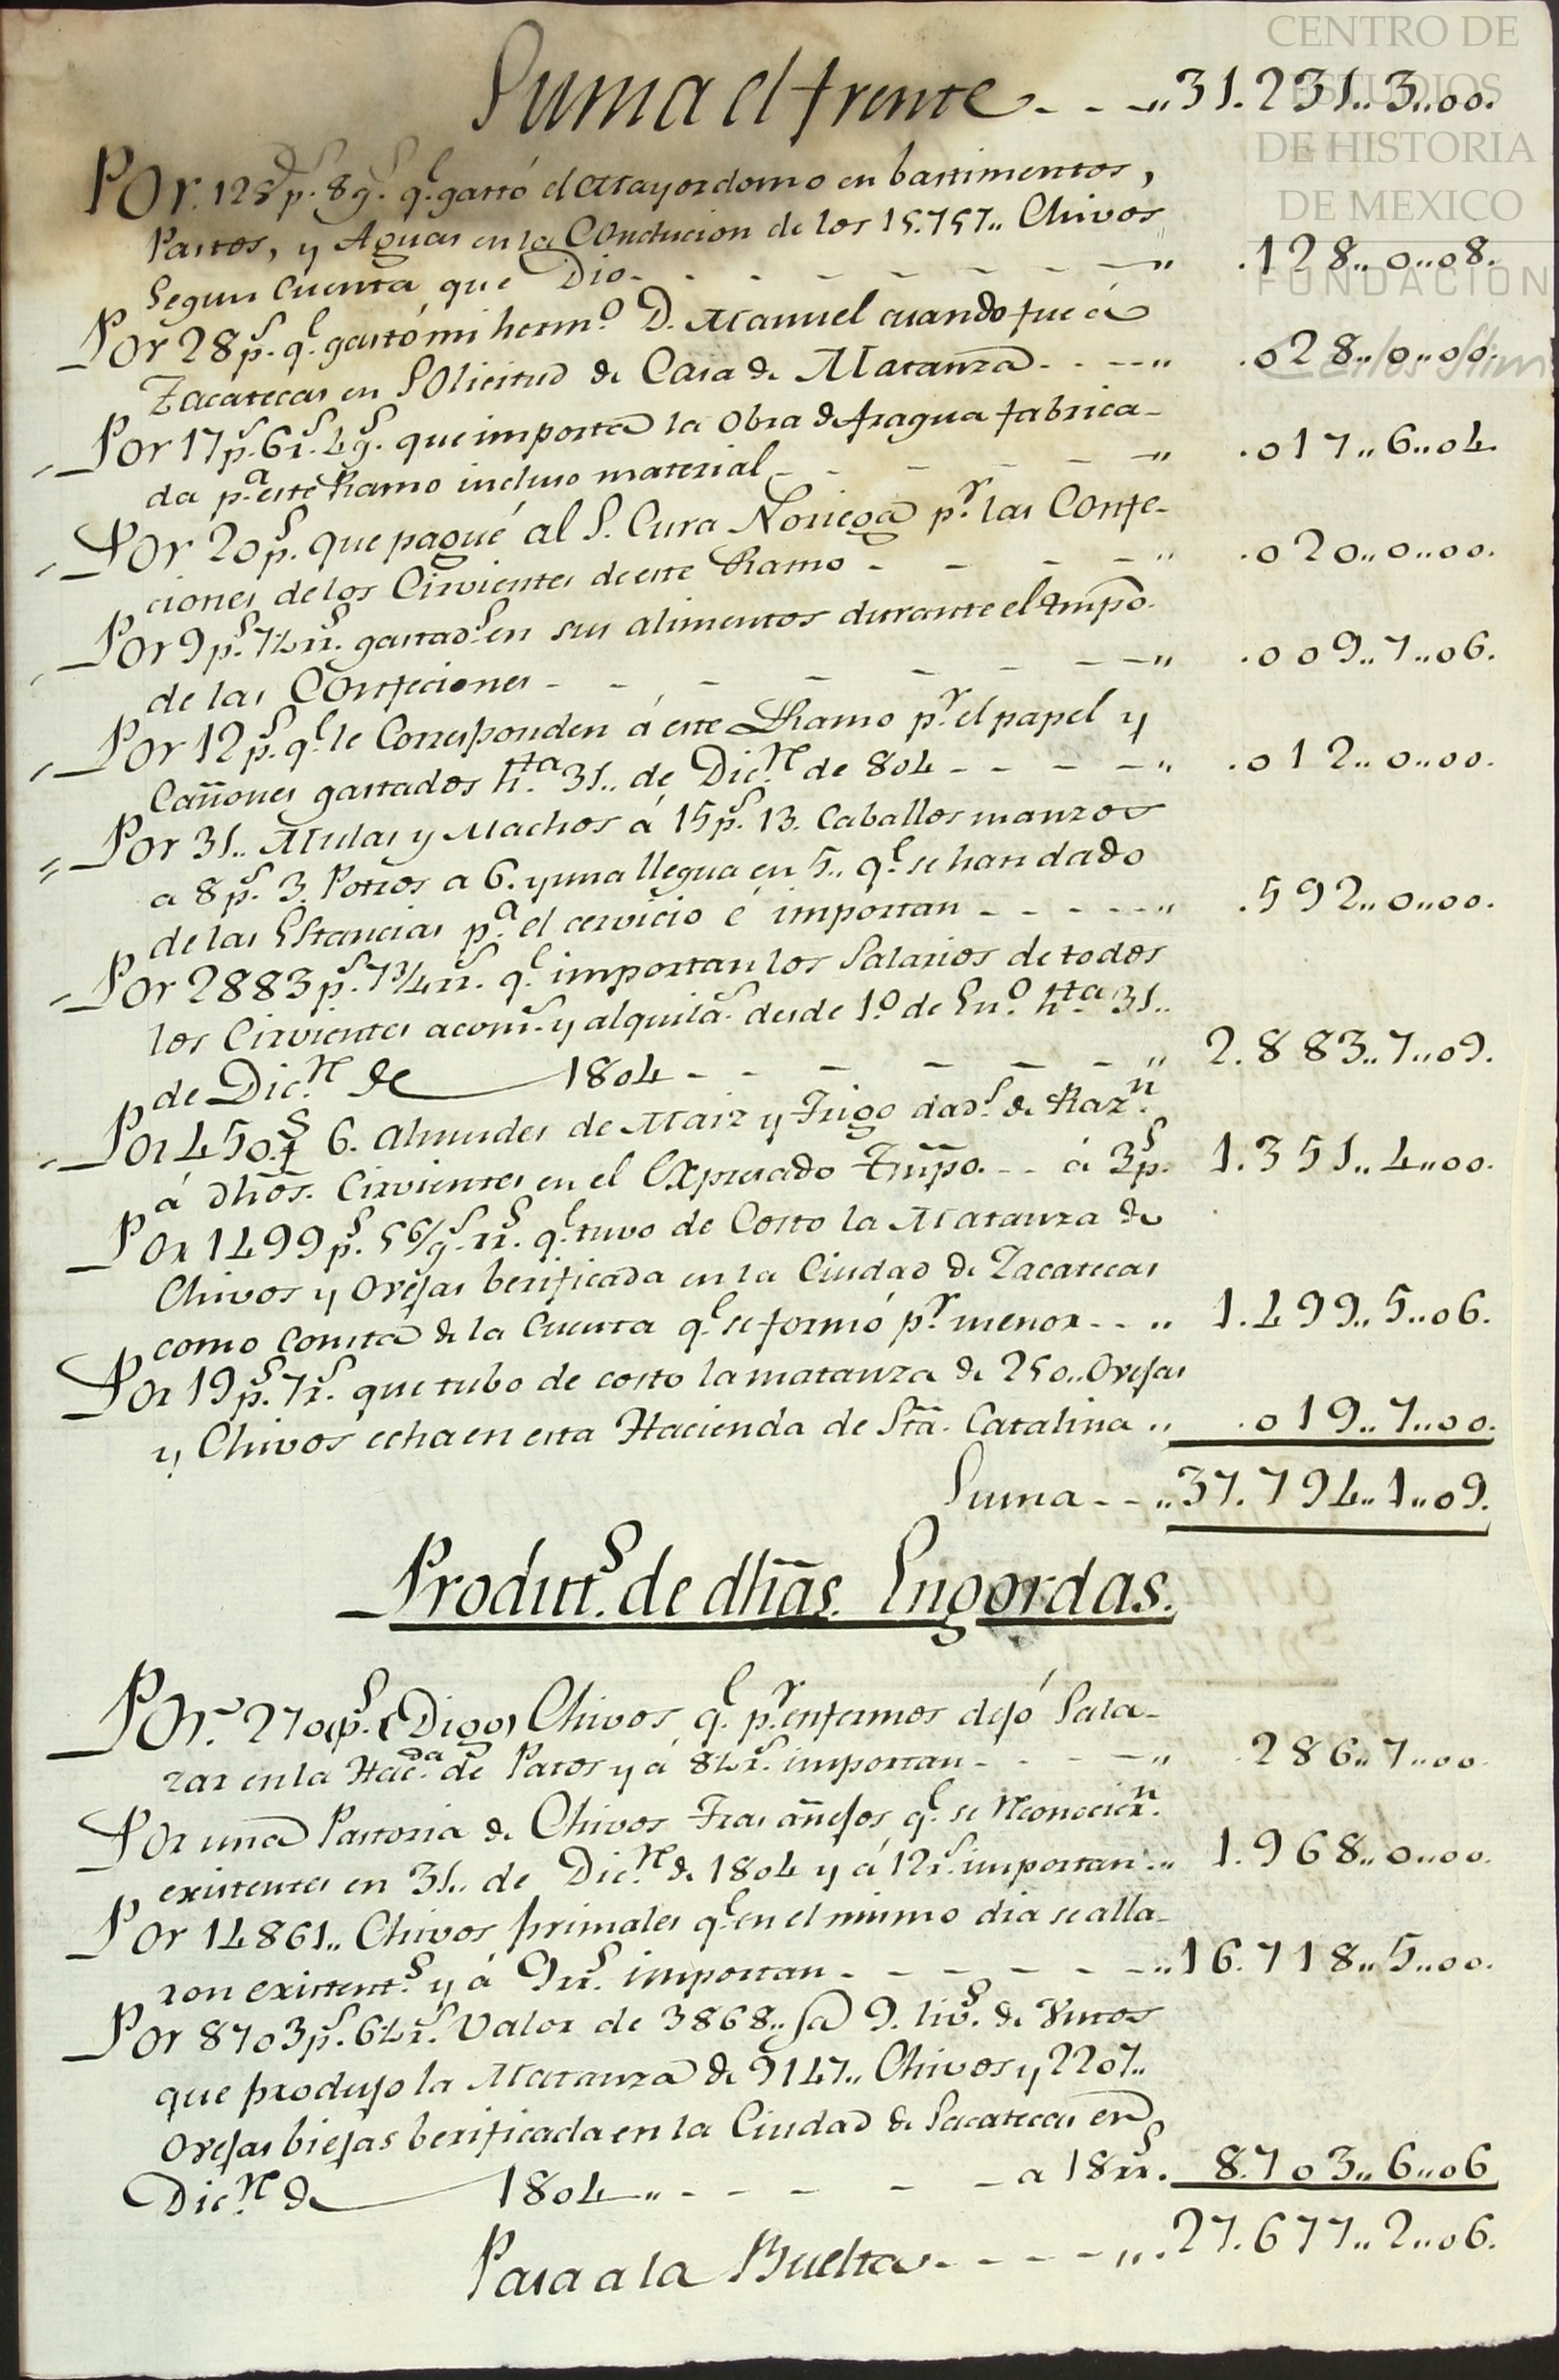 CENTRO DE
ESTUDIOS
DE HISTORIA
DE MEXICO
FUNDACIÓN
Carlos Slim
Suma el frente - - -,, 31.231,,3,,00.
Por. 128 p.s 8 g.s q.e gastó el Mayordomo en bastimentos,
Pastos, y Aguas en la Conducion de los 15.757,, Chivos
Segun Cuenta que Dio - - - - - - - - ,, .128,,0,,08.
Por 28 p.s q.e gastó mi herm.o D. Manuel cuando fue á
Zacatecas en Solicitud de Casa de Matanza - - - - ,, .028,,0,,00.
Por 17 p.s 6 r.s 4 g.s que importa la Obra de fragua fabrica-
da p.a este Ramo incluso material - - - - - - ,, .017,,6,,04.
Por 20 p.s que pagué al S. Cura Noriega p.r las Confe-
ciones de los Cirvientes de este Ramo - - - - ,, .020,,0,,00.
Por 9 p.s 7½ rr.s gastad.s en sus alimentos durante el tmpo.
de las Confeciones - - - - - - - ,, .009,,7,,06.
Por 12 p.s q.e le Corresponden á este Ramo p.r el papel y
Cañones gastados h.ta 31,, de Dic.re de 804 - - - - ,, .012,,0,,00.
Por 31,, Mulas y Machos á 15 p.s 13. Caballos manzos
a 8 p.s 3. Potros a 6. y una llegua en 5,, q.e se han dado
de las Estancias p.a el cervicio é importan - - - - - ,, .592,,0,,00.
Por 2883 p.s 7¾ rr.s q.e importan los Salarios de todos
los Cirvientes acom.s y alquila.s desde 1.o de En.o h.ta 31,,
de Dic.re de 1804 - - - - - - ,, 2.883,,7,,09.
Por 450 f.s 6. almudes de Maiz y Trigo dad.s de Raz.n
á dhõs. Cirvientes en el Expresado Tmpo. - - á 3 p.s 1.351,,4,,00.
Por 1499 p.s 5 6/g.s rr.s q.e tuvo de Costo la Matanza de
Chivos y Ovejas berificada en la Ciudad de Zacatecas
como consta de la Cuenta q.e se formó p.r menor - - ,, 1.499,,5,,06.
Por 19 p.s 7 r.s que tubo de costo la matanza de 250,, Ovejas
y Chivos echa en esta Hacienda de Stã. Catalina ,, .019,,7,,00.
Suma - - ,, 37.794,,1,,09.
Product.s de dhãs. Engordas.
Por. 270 p.s (Digo) Chivos q.e p.r enfermos dejó Sala-
zar en la Hac.da de Patos y á 8½ r.s importan - - - - ,, .286,,7,,00.
Por una Pastoria de Chivos Tras añejos q.e se reconocier.n
existentes en 31,, de Dic.re de 1804 y á 12 r.s importan ,, 1.968,,0,,00.
Por 14861,, Chivos primales q.e en el mismo dia se alla-
ron existent.s y á 9 rr.s importan - - - - - - ,, 16.718,,5,,00.
Por 8703 p.s 6½ r.s Valor de 3868,, @ 9. liv.s de Untos
que produjo la Matanza de 9147,, Chivos y 2207,,
Ovejas biejas berificada en la Ciudad de Sacatecas en
Dic.re de 1804,, - - - - - a 18 rr.s 8.703,,6,,06
Pasa a la Buelta - - - - ,,. 27.677,,2,,06.